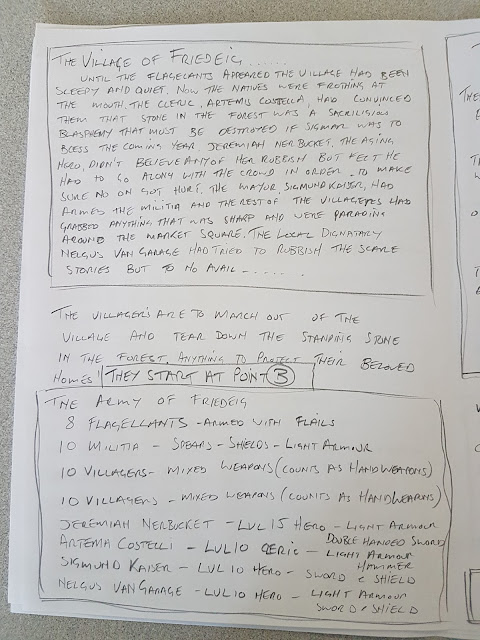 THE VILLAGE OF FRIEDEIG......
UNTIL THE FLAGELANTS APPEARED THE VILLAGE HAD BEEN
SLEEPY AND QUIET. NOW THE NATIVES WERE FROTHING AT
THE MOUTH. THE CLERIC, ARTEMIS COSTELLA, HAD CONVINCED
THEM THAT STONE IN THE FOREST WAS A SACRILIGIOUS
BLASPHEMY THAT MUST BE DESTROYED IF SIGMAR WAS TO
BLESS THE COMING YEAR. JEREMIAH NERBUCKET, THE AGING
HERO, DIDN'T BELIEVE ANY OF HER RUBBISH BUT FELT HE
HAD TO GO ALONG WITH THE CROWD IN ORDER TO MAKE
SURE NO ON GOT HURT. THE MAYOR SIGMUND KAISER, HAD
ARMED THE MILITIA AND THE REST OF THE VILLAGERS HAD
GRABBED ANYTHING THAT WAS SHARP AND WERE PARADING
AROUND THE MARKET SQUARE. THE LOCAL DIGNATARY
NELGUS VAN GARAGE HAD TRIED TO RUBBISH THE SCARE
STORIES BUT TO NO AVAIL -.....
THE VILLAGERS ARE TO MARCH OUT OF THE
VILLAGE AND TEAR DOWN THE STANDING STONE
IN THE FOREST. ANYTHING TO PROTECT THEIR BELOVED
HOMES THEY START AT POINT B
THE ARMY OF FRIEDEIG
8 FLAGELLANTS - ARMED WITH FLAILS
10 MILITIA - SPEARS - SHIELDS - LIGHT ARMOUR
10 VILLAGERS - MIXED WEAPONS (COUNTS AS HANDWEAPONS)
10 VILLAGERS - MIXED WEAPONS (COUNTS AS HANDWEAPONS)
JEREMIAH NERBUCKET - LVL 15 HERO - LIGHT ARMOUR
DOUBLE HANDED SWORD
ARTEMA COSTELLI - LVL 10 CLERIC - LIGHT ARMOUR
HAMMER
SIGMUND KAISER - LVL 10 HERO - SWORD & SHIELD
NELGUS VAN GARAGE - LVL 10 HERO - LIGHT ARMOUR
SWORD & SHIELD